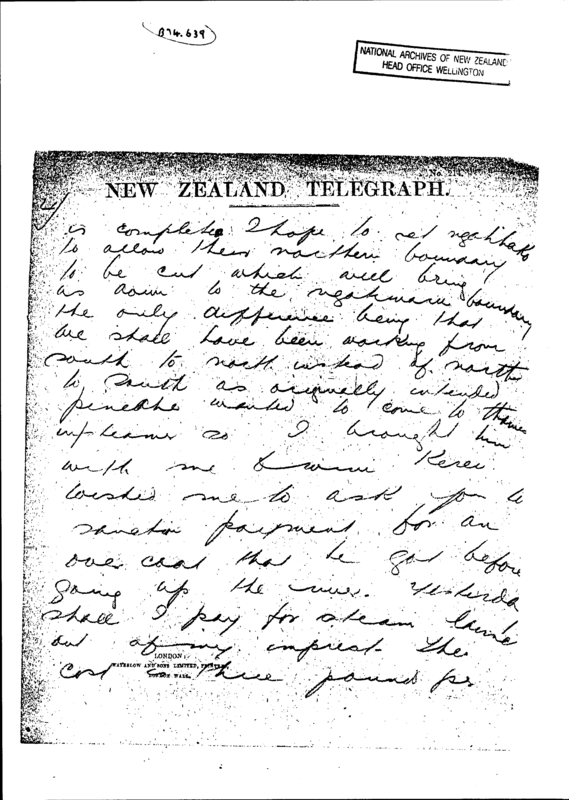 B74.639
NATIONAL ARCHIVES OF NEW ZEALAND
HEAD OFFICE WELLINGTON
NEW ZEALAND TELEGRAPH.
is complete I hope to get
to allow their northern boundary
to be cut which will bring
us down to the boundary
the only difference being that
we shall have been working from
south to north instead of north
to south as originally intended
wanted to come to Thames
in steamer so I brought him
with me Kerei
wished me to ask you to
sanction payment for an
over coat that he got before
going up the river. Yesterda
shall I pay for steam
out of my imprest. The
LONDON:
WATERLOW AND SONS LIMITED,
LONDON WALL.
cost three pound